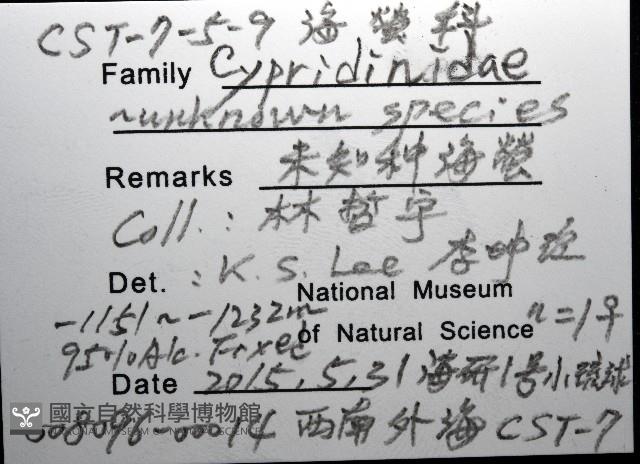 CST-7-5-9 海螢科
Family Cypridinidae
~unknown species
Remarks 未知种海螢
Coll.: 林哲宇
Det.: K. S. Lee 李坤瑄
National Museum
-1151~-1232m
of Natural Science n=1♀
95% Alc. Fixed
Date 2015.5.31 海研1号小琉球
國立自然科學博物館
NATIONAL MUSEUM OF NATURAL SCIENCE
008096-00014 西南外海 CST-7